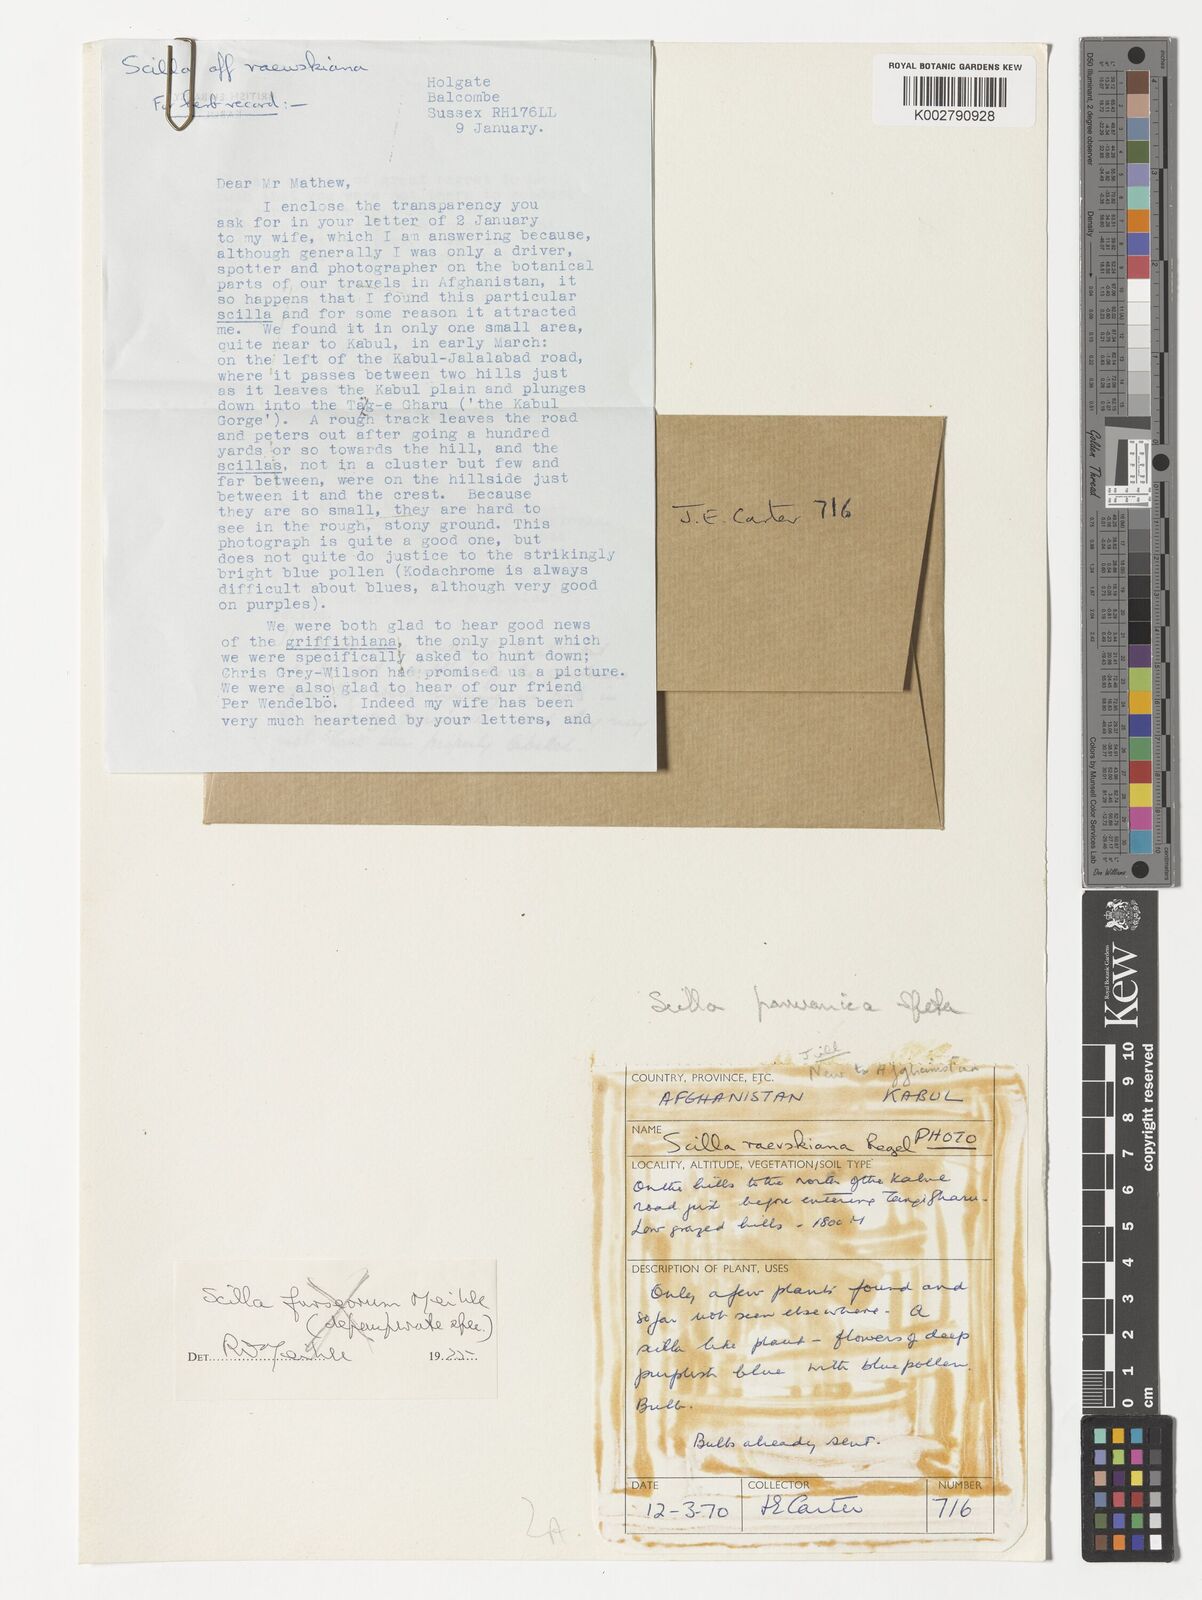 Scilla aff raewskiana
For herb record:—
Holgate
Balcombe
Sussex RH176LL
9 January.
Dear Mr Mathew,
I enclose the transparency you
ask for in your letter of 2 January
to my wife, which I am answering because,
although generally I was only a driver,
spotter and photographer on the botanical
parts of our travels in Afghanistan, it
so happens that I found this particular
scilla and for some reason it attracted
me. We found it in only one small area,
quite near to Kabul, in early March:
on the left of the Kabul-Jalalabad road,
where it passes between two hills just
as it leaves the Kabul plain and plunges
down into the Tag-e Gharu ('the Kabul
Gorge'). A rough track leaves the road
and peters out after going a hundred
yards or so towards the hill, and the
scillas, not in a cluster but few and
far between, were on the hillside just
between it and the crest. Because
they are so small, they are hard to
see in the rough, stony ground. This
photograph is quite a good one, but
does not quite do justice to the strikingly
bright blue pollen (Kodachrome is always
difficult about blues, although very good
on purples).
We were both glad to hear good news
of the griffithiana, the only plant which
we were specifically asked to hunt down;
Chris Grey-Wilson had promised us a picture.
We were also glad to hear of our friend
Per Wendelbö. Indeed my wife has been
very much heartened by your letters, and
ROYAL BOTANIC GARDENS KEW
K002790928
J.E. Carter 716
Scilla parwanica Speta
New to Afghanistan
COUNTRY, PROVINCE, ETC.
AFGHANISTAN KABUL
NAME
Scilla raevskiana Regel PHOTO
LOCALITY, ALTITUDE, VEGETATION/SOIL TYPE
On the hills to the north of the Kabul
road just before entering Tangi Gharu.
Low grazed hills - 1800 M
DESCRIPTION OF PLANT, USES
Only a few plants found and
so far not seen elsewhere. A
scilla like plant - flowers of deep
purplish blue with blue pollen.
Bulb.
Bulbs already sent.
DATE COLLECTOR NUMBER
12-3-70 JE Carter 716
Scilla furseorum Meikle
(depauperate spec.)
DET. RD Meikle 19
Kew
Royal Botanic Gardens
copyright reserved
0 1 2 3 4 5 6 7 8 9 10
cm
Golden Thread
Colors by Munsell Color Services Lab
inches
centimeters
Density
D50 Illuminant, 2 degree observer
Don Williams